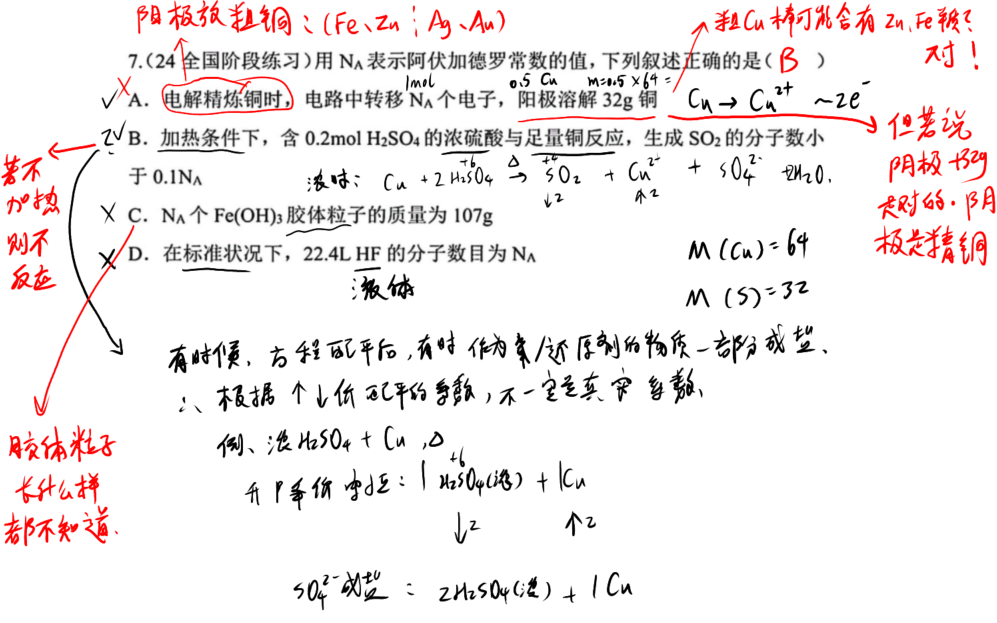 阳极放粗铜:(Fe、Zn ┆ Ag、Au)
粗Cu棒可能含有Zn,Fe
对!
7.(24 全国阶段练习)用 NA 表示阿伏加德罗常数的值,下列叙述正确的是( B )
1mol 0.5 Cu m=0.5×64=
A.电解精炼铜时,电路中转移 NA 个电子,阳极溶解 32g 铜 Cu → Cu²⁺ ~2e⁻
B.加热条件下,含 0.2mol H2SO4 的浓硫酸与足量铜反应,生成 SO2 的分子数小
于 0.1NA
浓时: Cu + 2H2SO4 →△ SO2 + Cu²⁺ + SO4²⁻ 2H2O.
+6 +4
↓2 ↑2
C.NA 个 Fe(OH)3 胶体粒子的质量为 107g
D.在标准状况下,22.4L HF 的分子数目为 NA
液体
若不
加热
则不
反应
但若说
阴极+32g
是对的.阴
极是精铜
M(Cu)=64
M(S)=32
有时候、方程配平后,有时作为氧/还原剂的物质一部分成盐、
∴ 根据↑↓价配平的系数,不一定是真实系数、
例、浓H2SO4 + Cu,△
+6
升降价守恒: 1 H2SO4(浓) + 1Cu
↓2 ↑2
SO4²⁻成盐: 2H2SO4(浓) + 1Cu
胶体粒子
长什么样
都不知道.